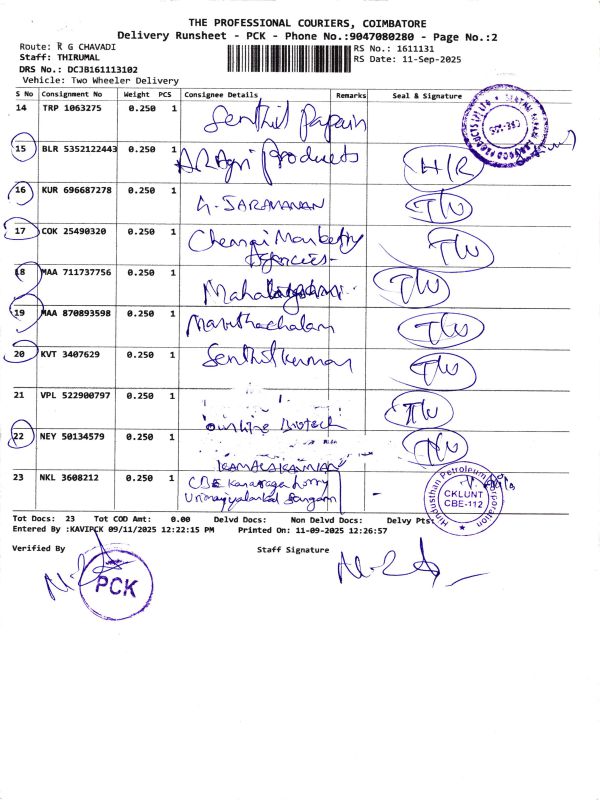 THE PROFESSIONAL COURIERS, COIMBATORE
Delivery Runsheet - PCK - Phone No.:9047080280 - Page No.:2
Route: R G CHAVADI
RS No.: 1611131
Staff: THIRUMAL
RS Date: 11-Sep-2025
DRS No.: DCJB161113102
Vehicle: Two Wheeler Delivery
S No Consignment No Weight PCS Consignee Details Remarks Seal & Signature
14 TRP 1063275 0.250 1 Senthil Papain
15 BLR 5352122443 0.250 1 AR Agri Products H/R
16 KUR 696687278 0.250 1 G. SARAVANAN T/W
17 COK 25490320 0.250 1 Chennai Marketing T/W
Agencies-
18 MAA 711737756 0.250 1 T/W
19 MAA 870893598 0.250 1 Maruthachalam T/W
20 KVT 3407629 0.250 1 Senthilkumar T/W
21 VPL 522900797 0.250 1 Biotech T/W
22 NEY 50134579 0.250 1 T/W
23 NKL 3608212 0.250 1 CBE Lorry
Sangam
Hindusthan Petroleum Corporation
CKLUNT
CBE-112
Tot Docs: 23 Tot COD Amt: 0.00 Delvd Docs: Non Delvd Docs: Delvy Pts:
Entered By :KAVIPCK 09/11/2025 12:22:15 PM Printed On: 11-09-2025 12:26:57
Verified By Staff Signature
PCK